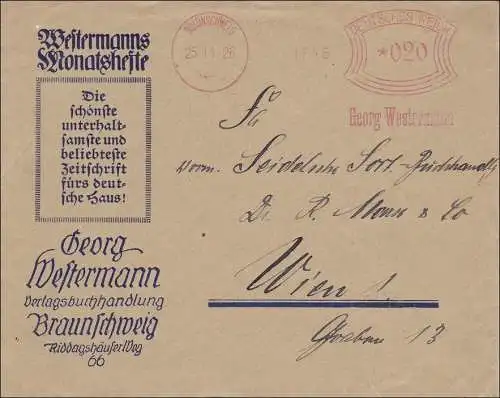 Westermanns
Monatshefte
Die
schönste
unterhalt-
samste und
beliebteste
Zeitschrift
fürs deut-
sche Haus!
Georg
Westermann
Verlagsbuchhandlung
Braunschweig
Riddagshäuser Weg
66
BRAUNSCHWEIG
25.11.26
DEUTSCHES REICH
*020
Georg Westermann
Fa
vorm. Seidelsche Sort. Buchhandlg
Dr. R. & Co
Wien 1.
Graben 13